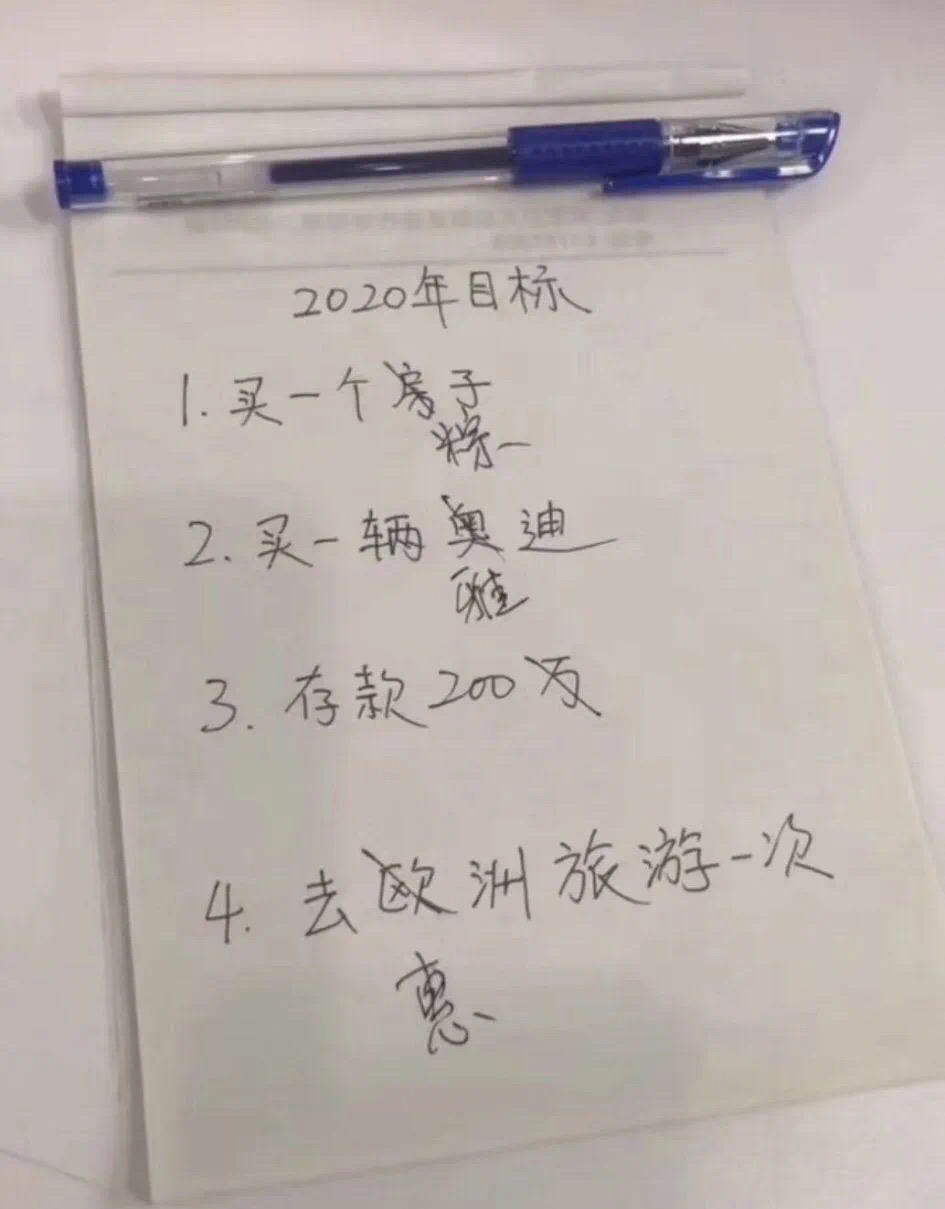 2020年目标
1. 买一个房子
粽
2. 买一辆奥迪
雅
3. 存款200万
4. 去欧洲旅游一次
惠